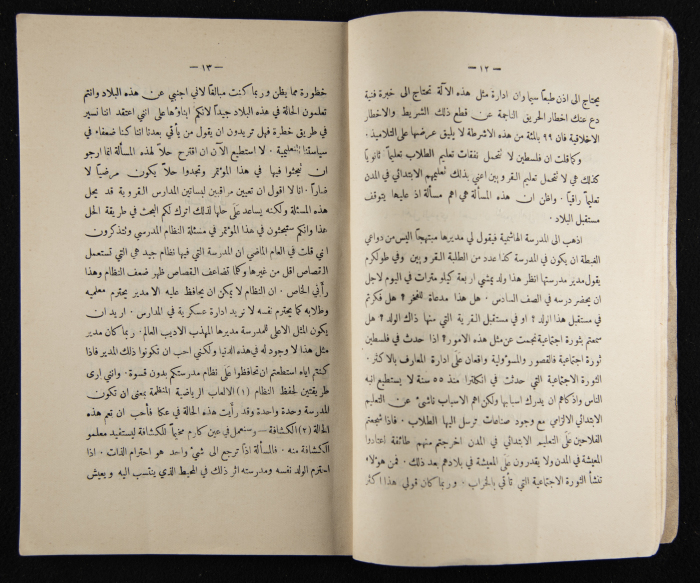 — ١٢ —
يحتاج الى اذن طبعاً سيما وان ادارة مثل هذه الآلة تحتاج الى خبرة فنية
دع عنك اخطار الحريق الناجمة عن قطع ذلك الشريط والاخطار
الاخلاقية فان ٩٩ بالمئة من هذه الاشرطة لا يليق عرضها على التلاميذ .
وكما قلت ان فلسطين لا تتحمل نفقات تعليم الطلاب تعليماً ثانوياً
كذلك هي لا تتحمل تعليم القرويين اعني بذلك تعليمهم الابتدائي في المدن
تعليماً راقياً . واظن ان هذه المسألة هي اهم مسألة اذ عليها يتوقف
مستقبل البلاد .
اذهب الى المدرسة الهاشمية فيقول لي مديرها مبتهجاً اليس من دواعي
الغبطة ان يكون في المدرسة كذا عدد من الطلبة القرويين وفي طولكرم
يقول مدير مدرستها انظر هذا ولد يمشي اربعة كيلو مترات في اليوم لاجل
ان يحضر درسه في الصف السادس . هل هذا مدعاة للفخر ؟ هل فكرتم
في مستقبل هذا الولد ؟ او في مستقبل القرية التي منها ذاك الولد ؟ هل
سمعتم بثورة اجتماعية نجمت عن مثل هذه الامور ؟ اذا حدث في فلسطين
ثورة اجتماعية فالقصور والمسؤولية واقعان على ادارة المعارف بالاكثر .
الثورة الاجتماعية التي حدثت في انكلترا منذ ٥٥ سنة لا يستطيع انبه
الناس واذكاهم ان يدرك اسبابها ولكن اهم الاسباب ناشئ عن التعليم
الابتدائي الالزامي مع وجود صناعات ترسل اليها الطلاب . فاذا شجعتم
الفلاحين على التعليم الابتدائي في المدن اخرجتم منهم طائفة اختاروا
المعيشة في المدن ولا يقدرون على المعيشة في بلادهم بعد ذلك . فمن هؤلاء
تنشأ الثورة الاجتماعية التي تأتي بالخراب . وربما كان قولي هذا اكثر
— ١٣ —
خطورة مما يظن وربما كنت مبالغاً لاني اجنبي عن هذه البلاد وانتم
تعلمون الحالة في هذه البلاد جيداً لانكم ابناؤها على انني اعتقد اننا نسير
في طريق خطرة فهل تريدون ان يقول من يأتي بعدنا اننا كنا ضعفاء في
سياستنا التعليمية . لا استطيع الآن ان اقترح حلاً لهذه المسألة انما ارجو
ان تبحثوا فيها في هذا المؤتمر وتجدوا حلاً يكون مرضياً لا
ضاراً . انا لا اقول ان تعيين مراقبين لبساتين المدارس القروية قد يحل
هذه المسئلة ولكنه يساعد على حلها لذلك اترك لكم البحث في طريقة الحل
هذا وانكم ستبحثون في هذا المؤتمر في مسئلة النظام المدرسي وتتذكرون
اني قلت في العام الماضي ان المدرسة التي فيها نظام جيد هي التي تستعمل
القصاص اقل من غيرها وكلما تضاعف القصاص ظهر ضعف النظام وهذا
رأيي الخاص . ان النظام لا يمكن ان يحافظ عليه الا مدير يحترم معلميه
وطلابه كما يحترم نفسه لا نريد ادارة عسكرية في المدارس . اريد ان
يكون المثل الاعلى للمدرسة مديرها المهذب الاديب العالم . ربما كان مدير
مثل هذا لا وجود له في هذه الدنيا ولكني احب ان تكونوا ذلك المدير فاذا
كنتم اياه استطعتم ان تحافظوا على نظام مدرستكم بدون قسوة . وانني ارى
طريقتين لحفظ النظام (١) الالعاب الرياضية المنظمة بمعنى ان تكون
المدرسة وحدة واحدة وقد رأيت هذه الحالة في عكا فأحب ان تعم هذه
الحالة (٢) الكشافة — وسنعمل في عين كارم مخيماً للكشافة ليستفيد معلمو
الكشافة منه . فالمسألة اذا ترجع الى شيء واحد هو احترام الذات . اذا
احترم الولد نفسه ومدرسته اثر ذلك في المحيط الذي ينتسب اليه ويعيش